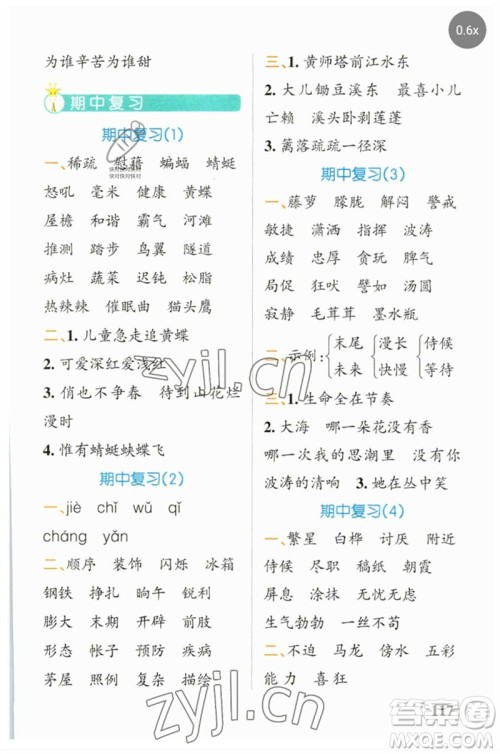 0.6x
为谁辛苦为谁甜
期中复习
期中复习(1)
一、稀疏 慰藉 蝙蝠 蜻蜓
怒吼 毫米 健康 黄蝶
屋檐 和谐 霸气 河滩
推测 踏步 鸟翼 隧道
病灶 蔬菜 迟钝 松脂
热辣辣 出租车 猫头鹰
二、1. 儿童急走追黄蝶
2. 可爱深红爱浅红
3. 俏也不争春 待到山花烂
漫时
4. 惟有蜻蜓蛱蝶飞
期中复习(2)
一、jiè chǐ wǔ qǐ
cháng yǎn
二、顺序 装饰 闪烁 冰箱
钢铁 挣扎 钓鱼 瞬间
膨大 末期 开辟 前肢
形态 帐子 预防 疾病
茅屋 照例 复杂 描绘
三、1. 黄师塔前江水东
2. 大儿锄豆溪东 中儿正织鸡笼
亡赖 溪头卧剥莲蓬
3. 篱落疏疏一径深
期中复习(3)
一、藤萝 朦胧 解闷 警戒
敏捷 潇洒 挥手 波涛
成绩 忠厚 贪玩 脾气
局促 狂欢 譬如 汤圆
寂静 毛茸茸 墨水瓶
二、示例: 末尾 漫长 侍候
未来 快慢 等待
三、1. 生命全在节奏
2. 大海 哪一朵花没有香
哪一次我的思潮里 没有你
波涛的清响 3. 她在丛中笑
期中复习(4)
一、繁星 白桦 讨厌 附近
侍候 尽职 稿纸 朝霞
屏息 涂抹 无忧无虑
生气勃勃 一丝不苟
二、不迫 马龙 傍水 五彩
能力 喜狂
117
zyjl.cn
zyjl.cn
答案圈
MXQE.COM